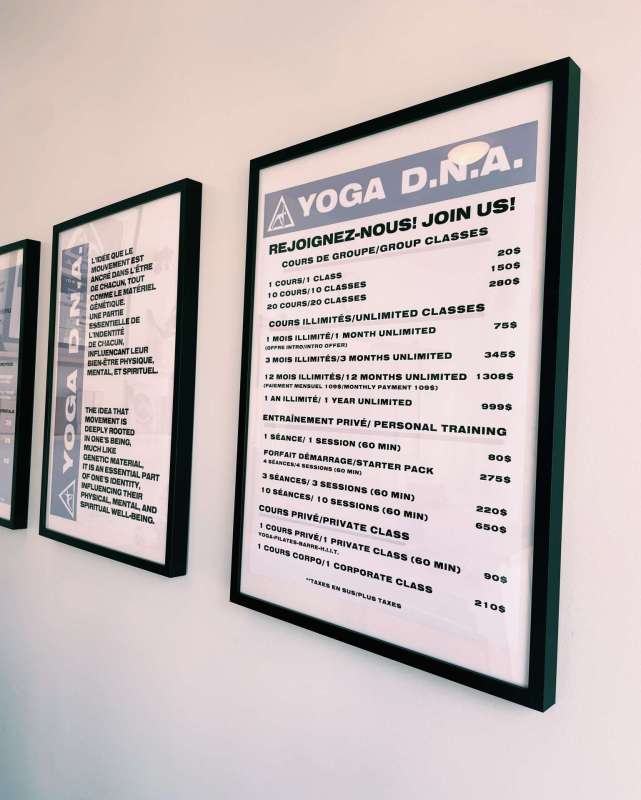 YOGA D.N.A.
L'IDÉE QUE LE
MOUVEMENT EST
ANCRÉ DANS L'ÊTRE
DE CHACUN, TOUT
COMME LE MATÉRIEL
GÉNÉTIQUE.
UNE PARTIE
ESSENTIELLE DE
L'INDENTITÉ
DE CHACUN,
INFLUENCANT LEUR
BIEN-ÊTRE PHYSIQUE,
MENTAL, ET SPIRITUEL.
THE IDEA THAT
MOVEMENT IS
DEEPLY ROOTED
IN ONE'S BEING,
MUCH LIKE
GENETIC MATERIAL,
IT IS AN ESSENTIAL PART
OF ONE'S IDENTITY,
INFLUENCING THEIR
PHYSICAL, MENTAL, AND
SPIRITUAL WELL-BEING.
YOGA D.N.A.
REJOIGNEZ-NOUS! JOIN US!
COURS DE GROUPE/GROUP CLASSES
1 COURS/1 CLASS 20$
10 COURS/10 CLASSES 150$
20 COURS/20 CLASSES 280$
COURS ILLIMITÉS/UNLIMITED CLASSES
1 MOIS ILLIMITÉ/1 MONTH UNLIMITED 75$
(OFFRE INTRO/INTRO OFFER)
3 MOIS ILLIMITÉS/3 MONTHS UNLIMITED 345$
12 MOIS ILLIMITÉS/12 MONTHS UNLIMITED 1308$
(PAIEMENT MENSUEL 109$/MONTHLY PAYMENT 109$)
1 AN ILLIMITÉ/ 1 YEAR UNLIMITED 999$
ENTRAÎNEMENT PRIVÉ/ PERSONAL TRAINING
1 SÉANCE/ 1 SESSION (60 MIN) 80$
FORFAIT DÉMARRAGE/STARTER PACK 275$
4 SÉANCES/4 SESSIONS (60 MIN)
3 SÉANCES/ 3 SESSIONS (60 MIN) 220$
10 SÉANCES/ 10 SESSIONS (60 MIN) 650$
COURS PRIVÉ/PRIVATE CLASS
1 COURS PRIVÉ/1 PRIVATE CLASS (60 MIN) 90$
YOGA-PILATES-BARRE-H.I.I.T.
1 COURS CORPO/1 CORPORATE CLASS 210$
**TAXES EN SUS/PLUS TAXES